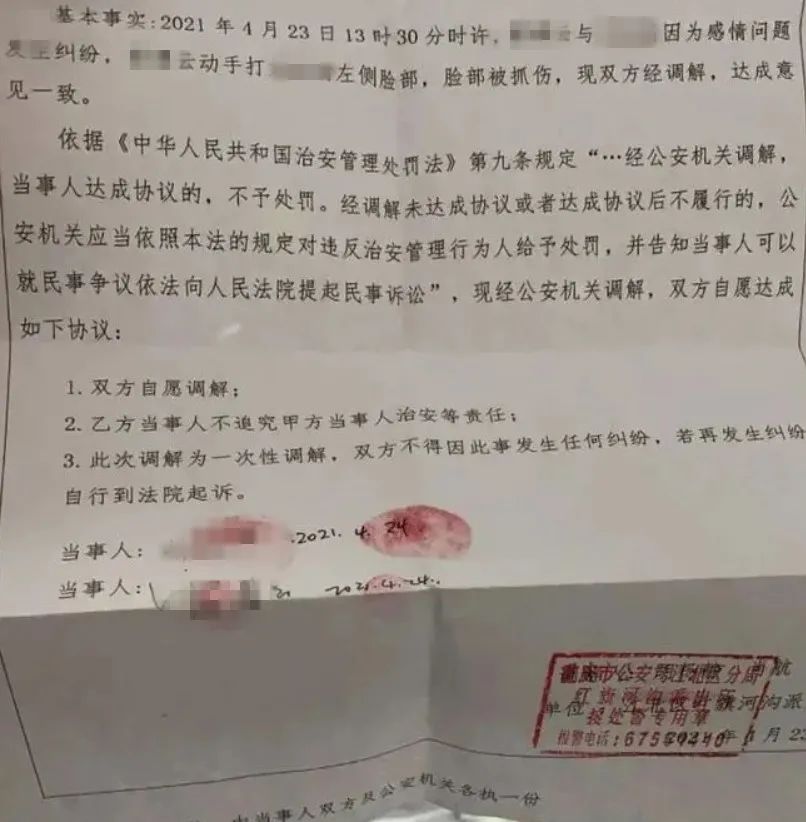 基本事实：2021 年 4 月 23 日 13 时 30 分时许，云与因为感情问题
发生纠纷，云动手打左侧脸部，脸部被抓伤，现双方经调解，达成意
见一致。
依据《中华人民共和国治安管理处罚法》第九条规定“…经公安机关调解，
当事人达成协议的，不予处罚。经调解未达成协议或者达成协议后不履行的，公
安机关应当依照本法的规定对违反治安管理行为人给予处罚，并告知当事人可以
就民事争议依法向人民法院提起民事诉讼”，现经公安机关调解，双方自愿达成
如下协议：
1. 双方自愿调解；
2. 乙方当事人不追究甲方当事人治安等责任；
3. 此次调解为一次性调解，双方不得因此事发生任何纠纷，若再发生纠纷
自行到法院起诉。
当事人： 2021. 4. 24
当事人： 2021.4.24.
市公安局江北区分局
红旗河沟派出所
接处警专用章
报警电话：675
单位 河沟派
年 4 月 23
当事人双方及公安机关各执一份